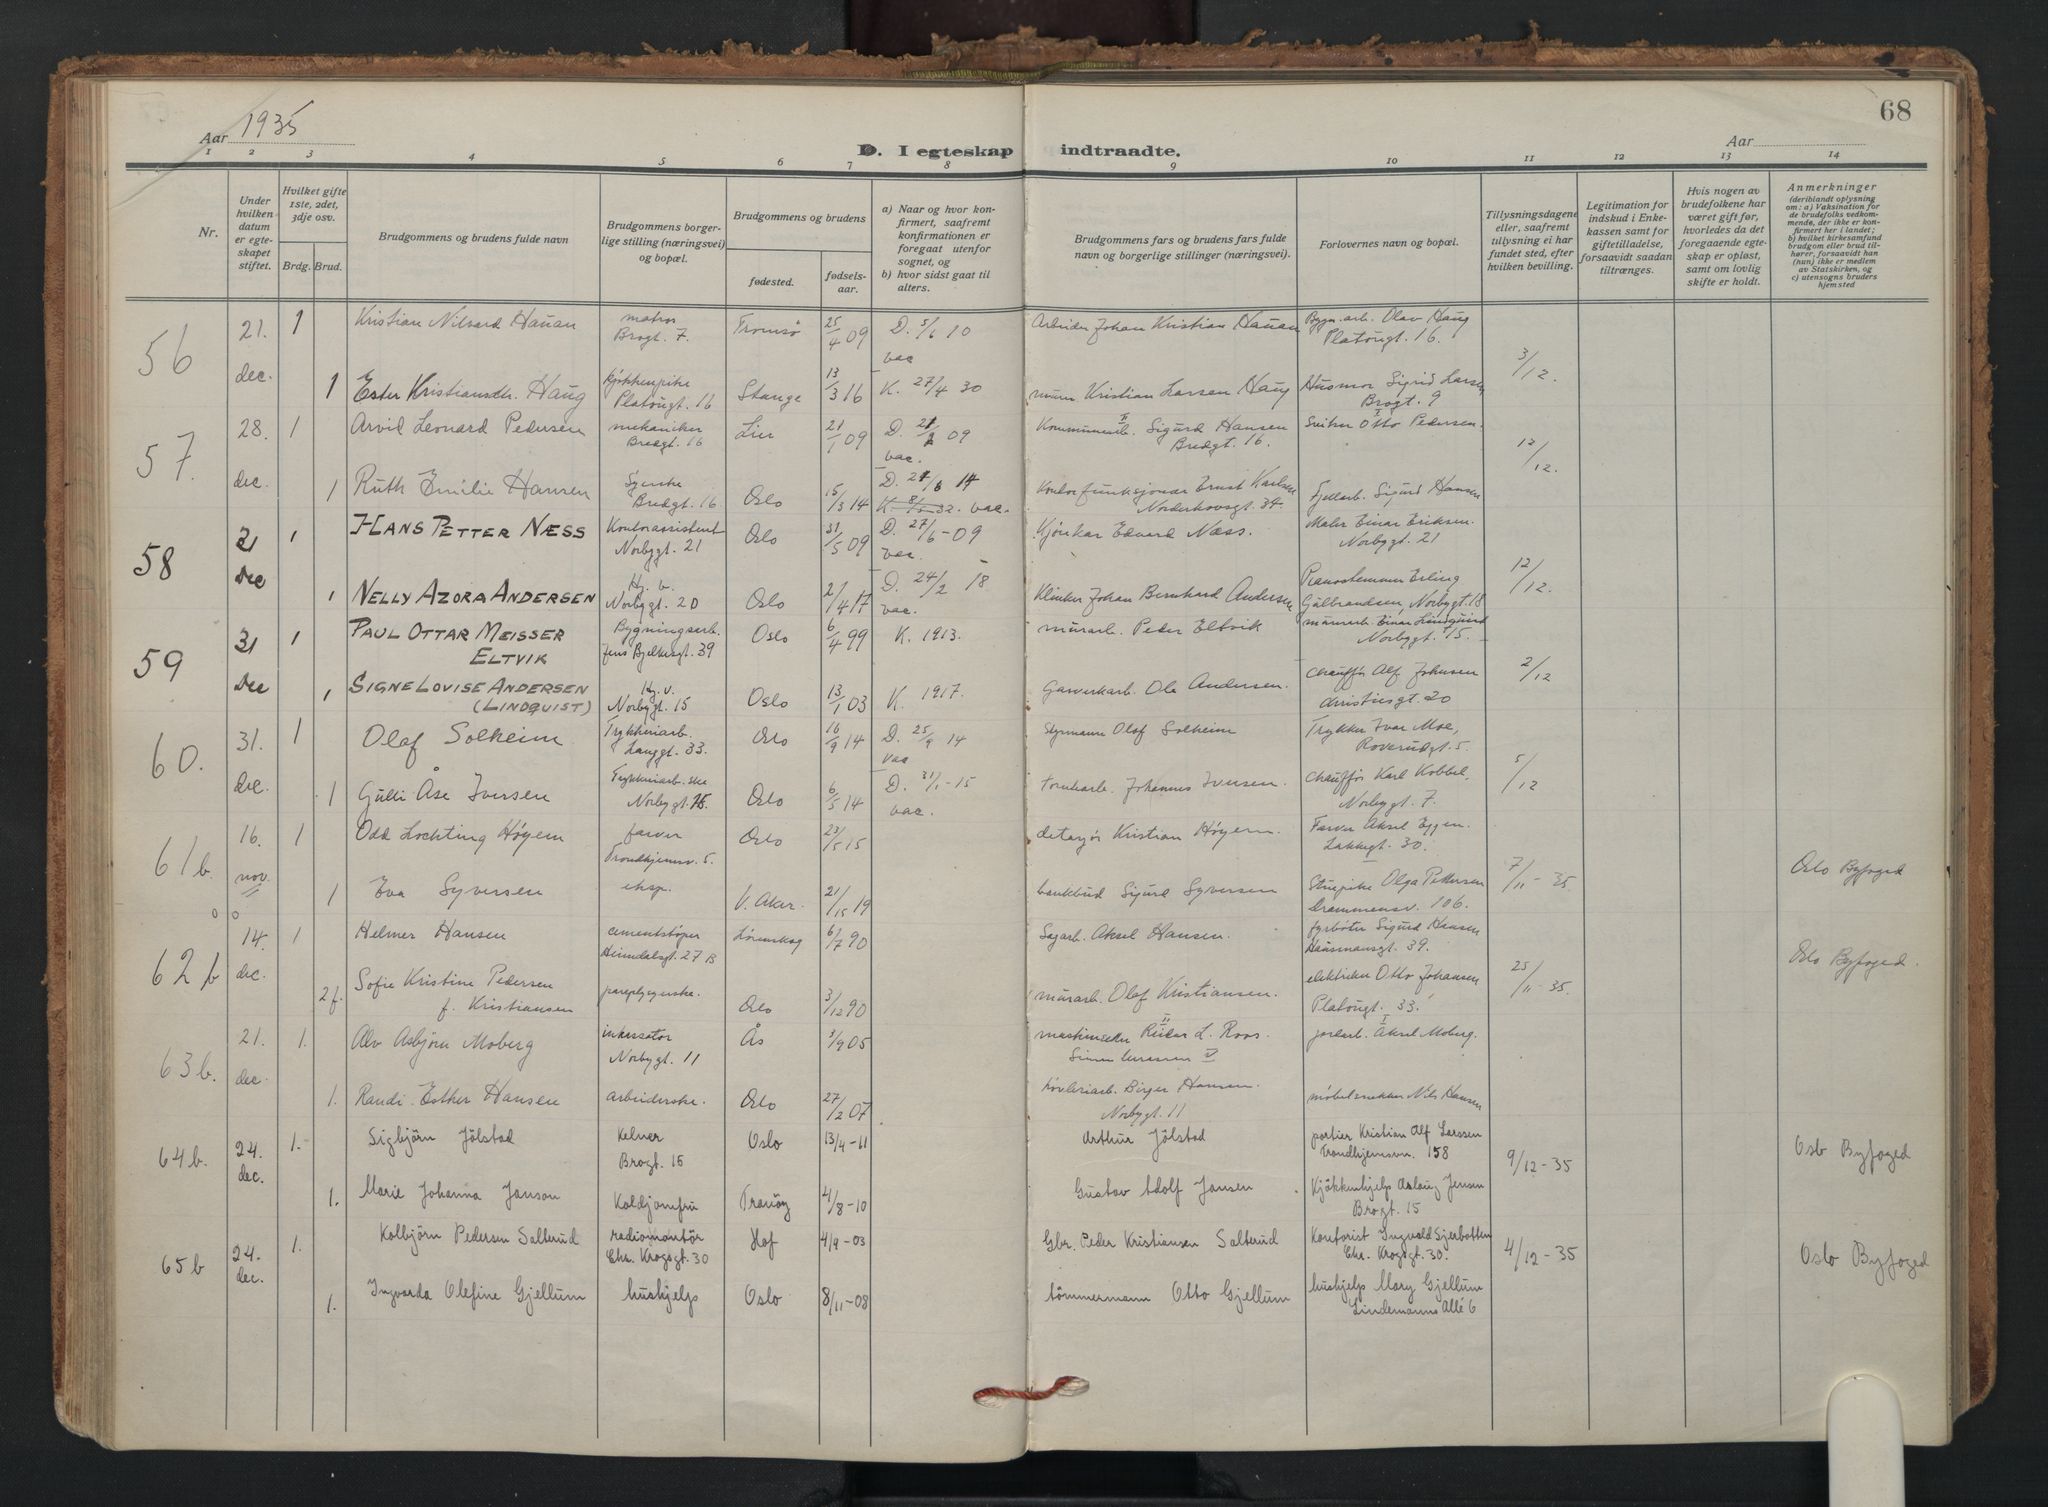 68
Aar 1935
D. I egteskap indtraadte.
Aar
1 2 3 4 5 6 7 8 9 10 11 12 13 14
Nr.
Under hvilken datum er egteskapet stiftet.
Hvilket gifte 1ste, 2det, 3dje osv.
Brdg. Brud.
Brudgommens og brudens fulde navn
Brudgommens borgerlige stilling (næringsvei) og bopæl.
Brudgommens og brudens
fødested.
fødselsaar.
a) Naar og hvor konfirmert, saafremt konfirmationen er foregaat utenfor sognet, og
b) hvor sidst gaat til alters.
Brudgommens fars og brudens fars fulde navn og borgerlige stillinger (næringsvei).
Forlovernes navn og bopæl.
Tillysningsdagene eller, saafremt tillysning ei har fundet sted, efter hvilken bevilling.
Legitimation for indskud i Enkekassen samt for giftetilladelse, forsaavidt saadan tiltrænges.
Hvis nogen av brudefolkene har været gift før, hvorledes da det foregaaende egteskap er opløst, samt om lovlig skifte er holdt.
Anmerkninger (deriblandt oplysning om: a) Vaksination for de brudefolks vedkommende, der ikke er konfirmert her i landet; b) hvilket kirkesamfund brudgom eller brud tilhører, forsaavidt han (hun) ikke er medlem av Statskirken, og c) utensogns bruders hjemsted
56 21. dec. 1 Kristian Nilvard Hauan matros Brogt. 7. Tromsø 25/4 09 D. 5/6 10 vac Arbeider Johan Kristian Hauan Bygn.arb. Olav Haug Platougt. 16. 3/12.
1 Ester Kristiansdtr. Haug kjøkkenpike Platougt. 16 Stange 13/3 16 K. 27/4 30 murer Kristian Larsen Haug Husmor Sigrid Larsen, Brogt. 9
57. 28. dec. 1 Arvil Leonard Pedersen mekaniker Bredgt. 16 Lier 21/1 09 D. 09 vac. Kommunearb. Sigurd Hansen Bredgt. 16. Otto Pedersen. 12/12.
1 Ruth Emilie Hansen Syerske Bredgt. 16 Oslo 15/3 14 D. 21/6 14 K. 8/5 32. vac. Kontorfunksjonær Ernst Karlsen Norderhovsgt. 34 Fjellarb. Sigurd Hansen
58 21 Dec 1 HANS PETTER NÆSS Kontorassistent Norbygt. 21 Oslo 31/5 09 D. 27/6-09 vac. Kjørekar Edvard Næss. Maler Einar Eriksen. Norbygt. 21 12/12.
1 NELLY AZORA ANDERSEN Hj. v. Norbygt. 20 Oslo 2/4 17 D. 24/2 18 vac. Klinker Johan Bernhard Andersen Pianostemmer Erling Gulbrandsen, Norbygt. 18
59 31 Dec 1 PAUL OTTAR MEISSER ELTVIK Bygningsarb. Jens Bjelkesgt. 39 Oslo 6/4 99 K. 1913. murarb. Peder Eltvik murarb. Einar Lindquist Norbygt. 15. 2/12
1 SIGNE LOVISE ANDERSEN (LINDQUIST) Hj. v. Norbygt. 15 Oslo 13/1 03 K. 1917. Garverarb. Ole Andersen. Chauffør Alf Johnsen Christiesgt. 20
60. 31. dec. 1 Olaf Solheim Trykkeriarb. Langgt. 33. Oslo 16/9 14 D. 25/9 14 vac Styrmann Olaf Solheim Trykker Ivar Moe, Roverudgt. 5. 5/12
1 Gulli Åse Iversen Trykkeriarb.ske Norbygt. 15. Oslo 6/5 14 D. 31/1-15 vac. tomtearb. Johannes Iversen. Chauffør Karl Kobbel, Norbygt. 7.
61 b. 16. nov. 1 Odd Lochting Høyem farver Trondhjemsv. 5. Oslo 23/5 15 detaljør Kristian Høyem. Farver Aksel Eggen. Lakkegt. 30. 7/11-35. Oslo Byfoged
1 Eva Syversen eksp. V. Aker. 21/ 19 bankbud Sigurd Syversen Stuepike Olga Pettersen Drammensv. 106.
62 b 14. dec. 1 Helmer Hansen cementstøper Heimdalsgt. 27 B Lørenskog 6/7 90 Sagarb. Aksel Hansen. fyrbøter Sigurd Hansen Hausmansgt. 39. 25/11-35. Oslo Byfoged.
2 f. Sofie Kristine Pedersen f. Kristiansen Oslo 3/12 90 murarb. Olaf Kristiansen. elektriker Otto Johansen Platougt. 33.
63 b. 21. dec. 1. Alv Asbjørn Moberg inkassator Norbygt. 11 Ås 1/9 05 Reidar L. Roos. jordarb. Aksel Moberg.
1. Randi Esther Hansen arbeiderske. Oslo 27/2 07 Birger Hansen. Norbygt. 11 møbelsnekker Nils Hansen
64 b. 24. dec. 1. Sigbjörn Jölstad Kelner Brogt. 15 Oslo 13/4-11 Arthur Jölstad portier Kristian Alf Larssen Trondhjemsvn. 158 9/12-35 Oslo Byfoged
1. Marie Johanna Janson Koldjomfru Tranöy 4/8-10 Gustav Adolf Jansen Kjökkenhjelp Aslaug Jensen Brogt. 15
65 b 24. dec. 1. Kolbjörn Pedersen Salterud radiomontör Chr. Krogsgt. 30 Hof 4/9-03 Gbr. Peder Kristiansen Salterud Kontorist Ingvald Sjerbotten Chr. Krogsgt. 30. 4/12-35 Oslo Byfoged
1. Ingvarda Olefine Gjellum hushjelp Oslo 8/11-08 tömmermann Otto Gjellum hushjelp Mary Gjellum Lindemanns Allé 6